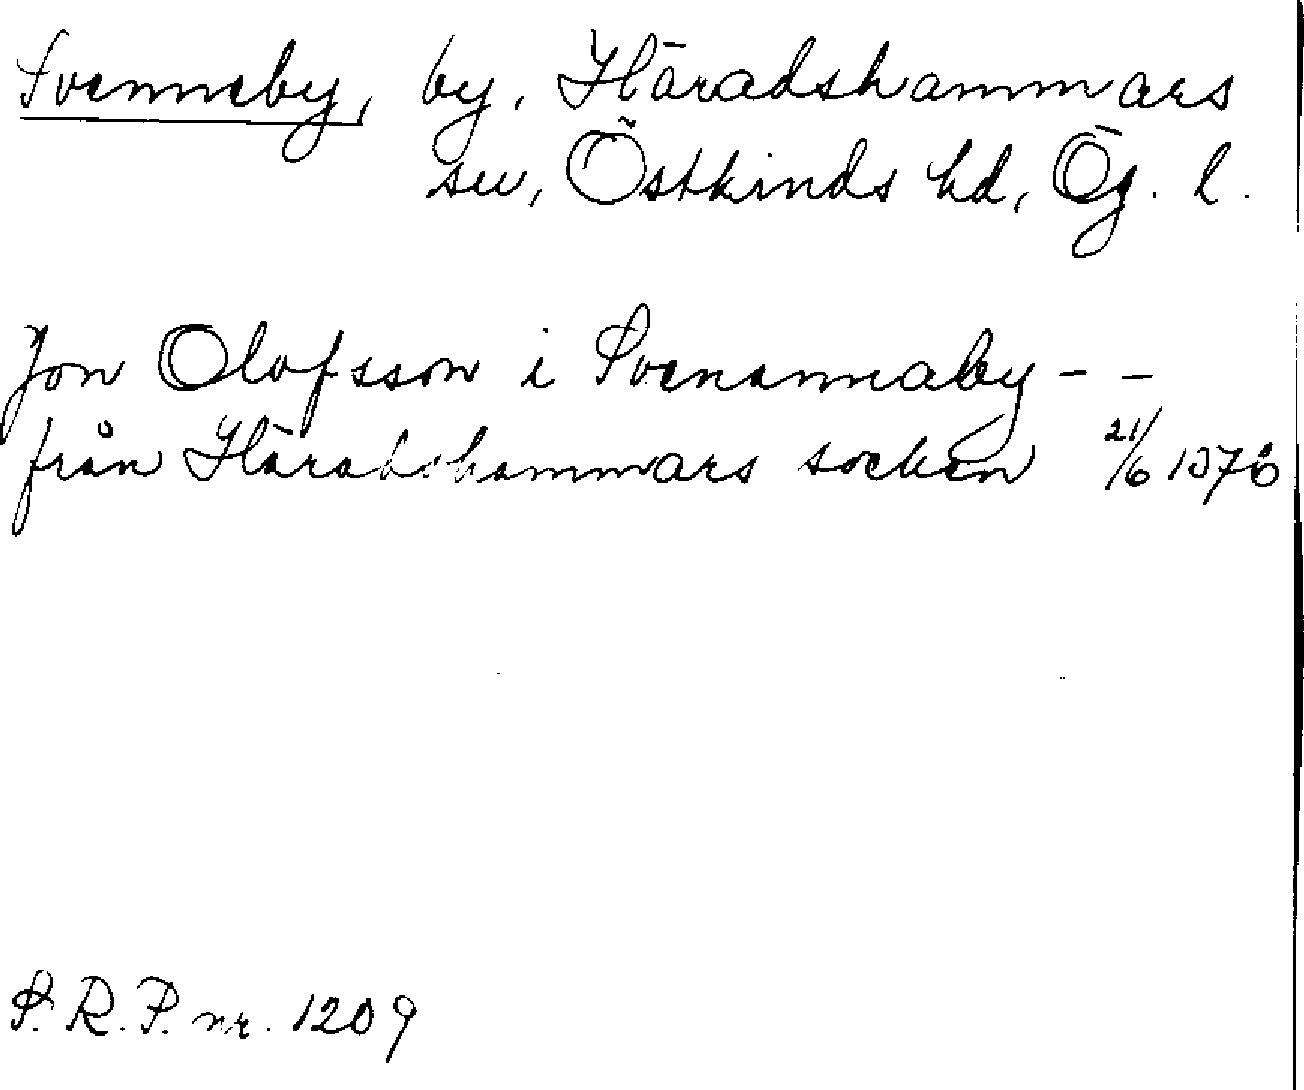 Svenneby, by, Häradshammars
sn, Östkinds hd, Ög. l.
Jon Olofsson i Svenanneaby - -
från Häradshammars socken 21/6 1376
S. R. P. nr. 1209